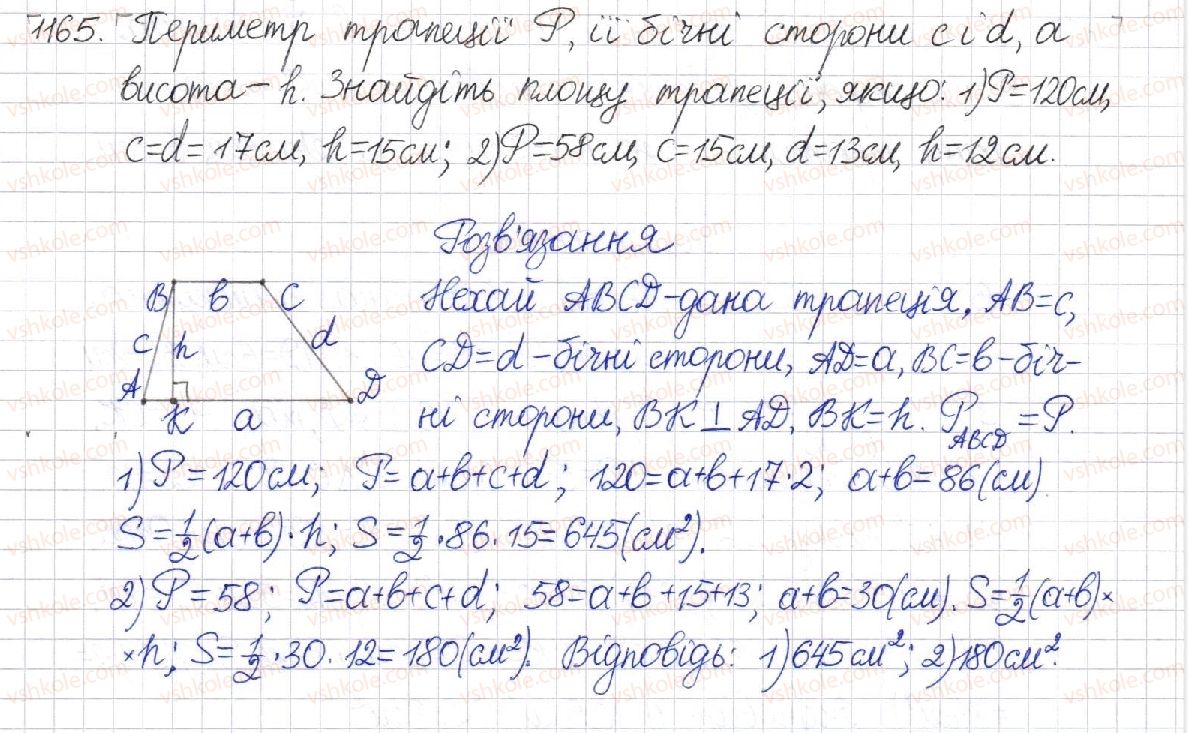 1165. Периметр трапеції P, її бічні сторони c і d, а
висота – h. Знайдіть площу трапеції, якщо: 1) P=120см,
c=d=17см, h=15см; 2) P=58см, c=15см, d=13см, h=12см.
Розв'язання
B b C
c h d
A K a D
Нехай ABCD-дана трапеція, AB=c,
CD=d-бічні сторони, AD=a, BC=b-біч-
ні сторони, BK⊥AD, BK=h. P_ABCD=P.
1) P=120см; P=a+b+c+d; 120=a+b+17·2; a+b=86(см)
S=1/2(a+b)·h; S=1/2·86·15=645(см²).
2) P=58; P=a+b+c+d; 58=a+b+15+13; a+b=30(см). S=1/2(a+b)×
×h; S=1/2·30·12=180(см²). Відповідь: 1) 645см²; 2) 180см².
vshkole.com